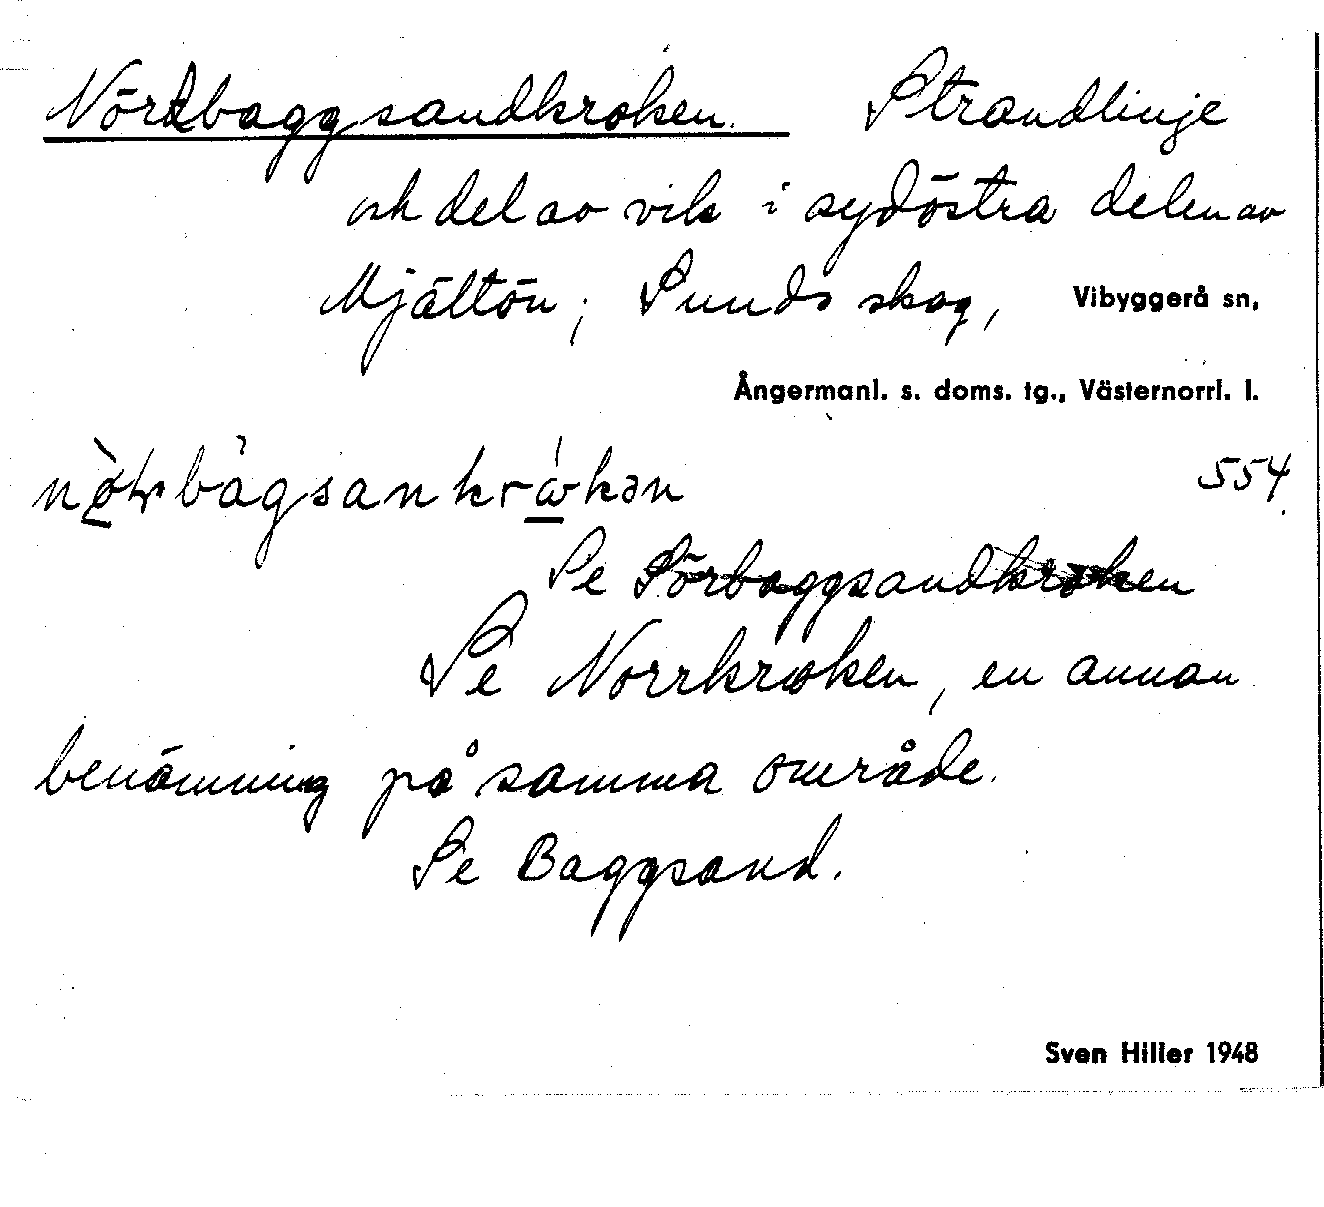 Nördbaggsandkroken. Strandlinje
och del av vik i sydöstra delen av
Mjältön; Sunds skog, Vibyggerå sn,
Ångermanl. s. doms. tg., Västernorrl. l.
554.
Se Sörbaggsandkroken
Se Norrkroken, en annan
benämning på samma område.
Se Baggsand.
Sven Hiller 1948